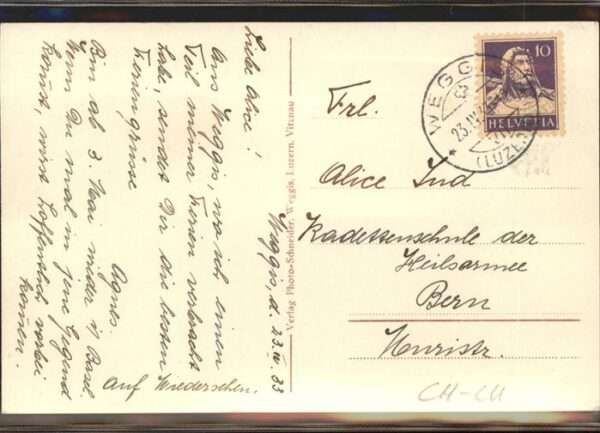 Weggis, d. 23.IV.33
Liebe Alice!
Aus Weggis, wo ich einen
Teil meiner Ferien verbracht
habe, sendet Dir die besten
Feriengrüsse
Agnes.
Bin ab 3. Mai wieder i/ Basel.
Wenn Du mal in jene Gegend
kommst, wirst hoffentlich vorbei
kommen.
Auf Wiedersehen.
Verlag Photo-Schneider, Weggis, Luzern, Vitznau
10
HELVETIA
WEGGIS
23.IV.
(LUZERN)
Frl.
Alice Ind
Kadettenschule der
Heilsarmee
Bern
Muristr.
CH-CH